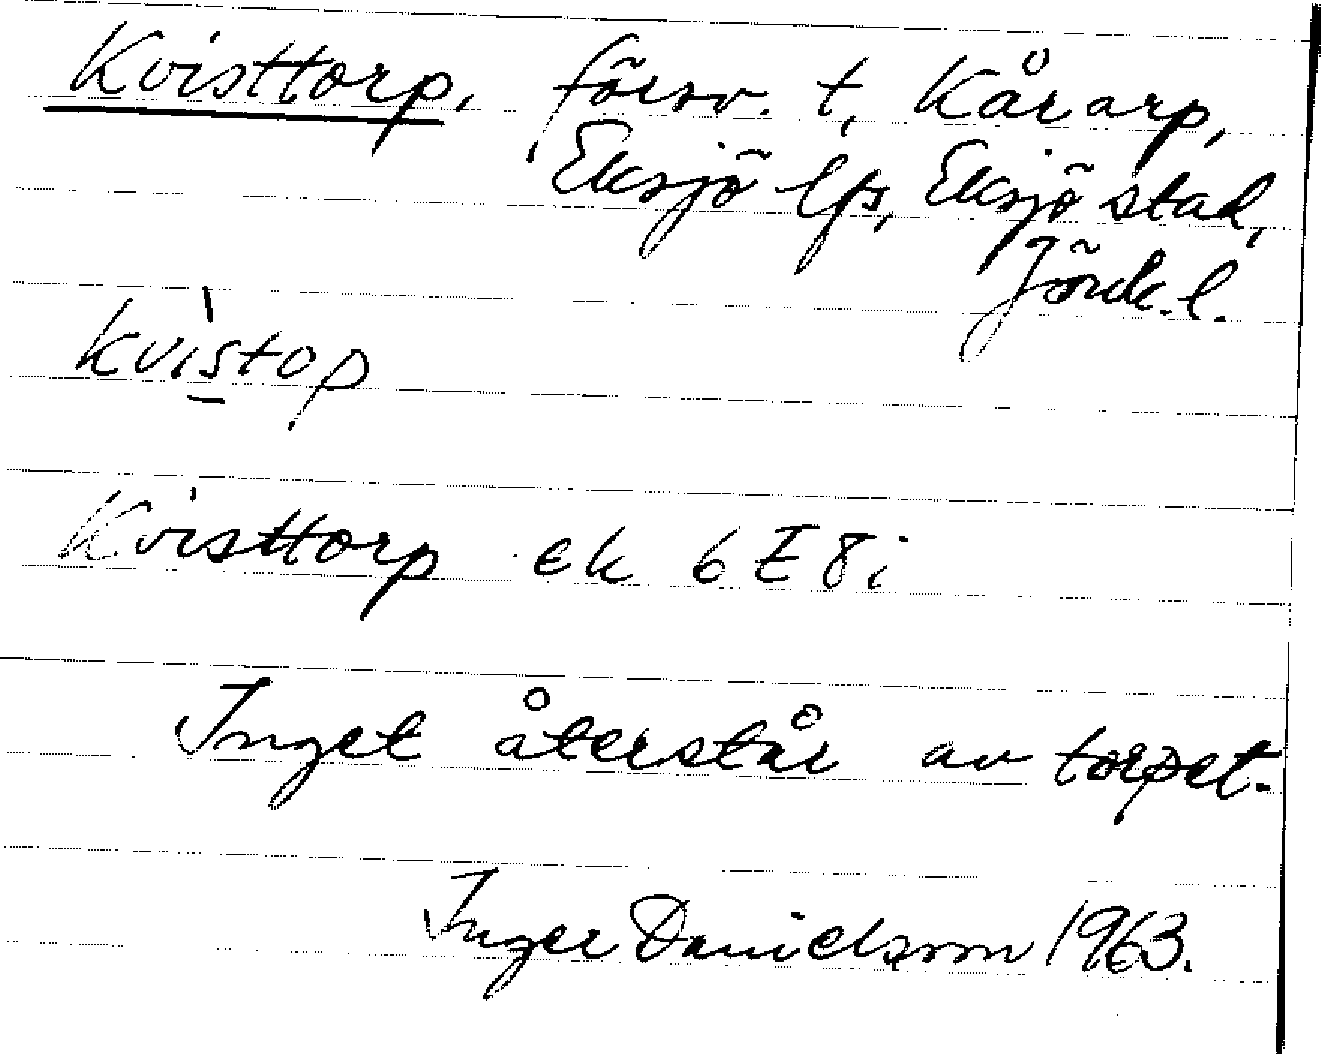 Kvisttorp, försv. t, Kårarp,
Eksjö lfs, Eksjö stad,
Jönk.l.
kvistop
Kvisttorp ek 6E8i
Inget återstår av torpet.
Inger Danielsson 1963.